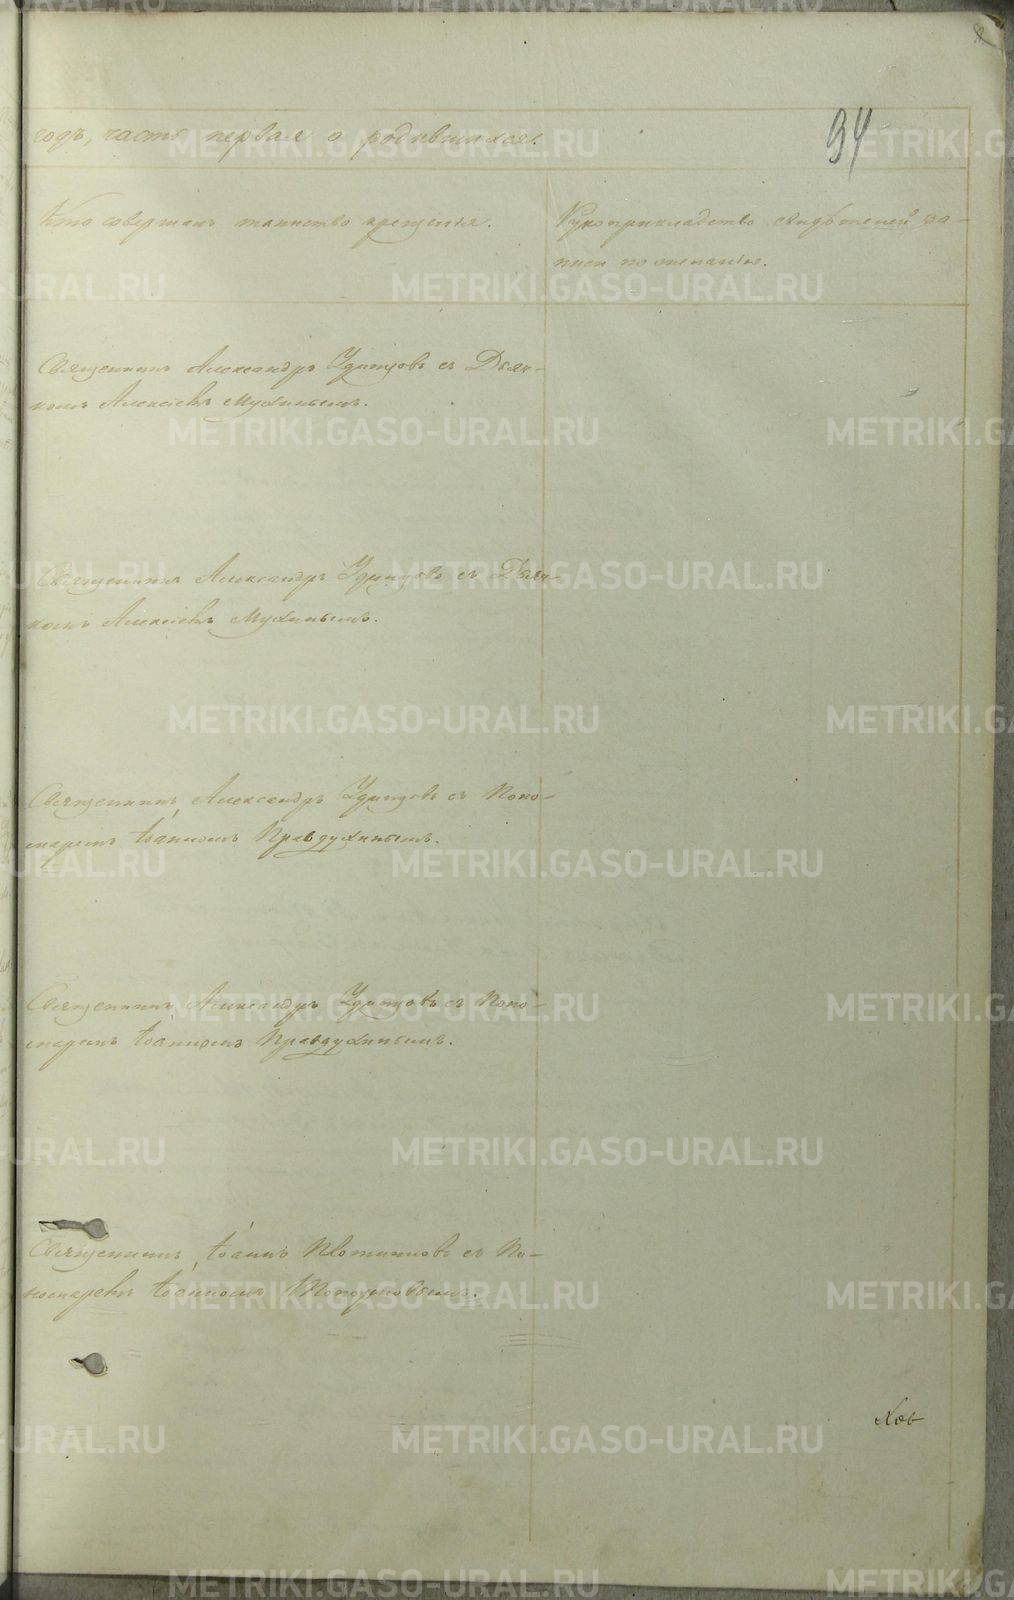 годъ, часть первая о родившихся.
94
Кто совершалъ таинство крещенія.
Рукоприкладство свидѣтелей за-
писи по желанію.
Священникъ Александръ Удинцовъ съ Діако-
номъ Алексіемъ Мухинымъ.
Священникъ Александръ Удинцовъ съ Діако-
номъ Алексіемъ Мухинымъ.
Священникъ Александръ Удинцовъ съ Поно-
маремъ Іоанномъ Правдухинымъ.
Священникъ Александръ Удинцовъ съ Поно-
маремъ Іоанномъ Правдухинымъ.
Священникъ Іоаннъ Плотниковъ съ По-
номаремъ Іоанномъ Топорковымъ.
METRIKI.GASO-URAL.RU